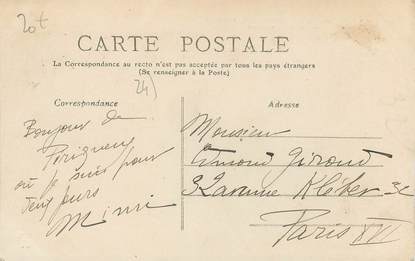 20t
CARTE POSTALE
La Correspondance au recto n'est pas acceptée par tous les pays étrangers
(Se renseigner à la Poste)
24)
Correspondance
Bonjour de
Périgueux
où je suis pour
deux jours
Mimi
Adresse
Monsieur
Edmond Giroud
3 avenue Kléber
Paris XVI